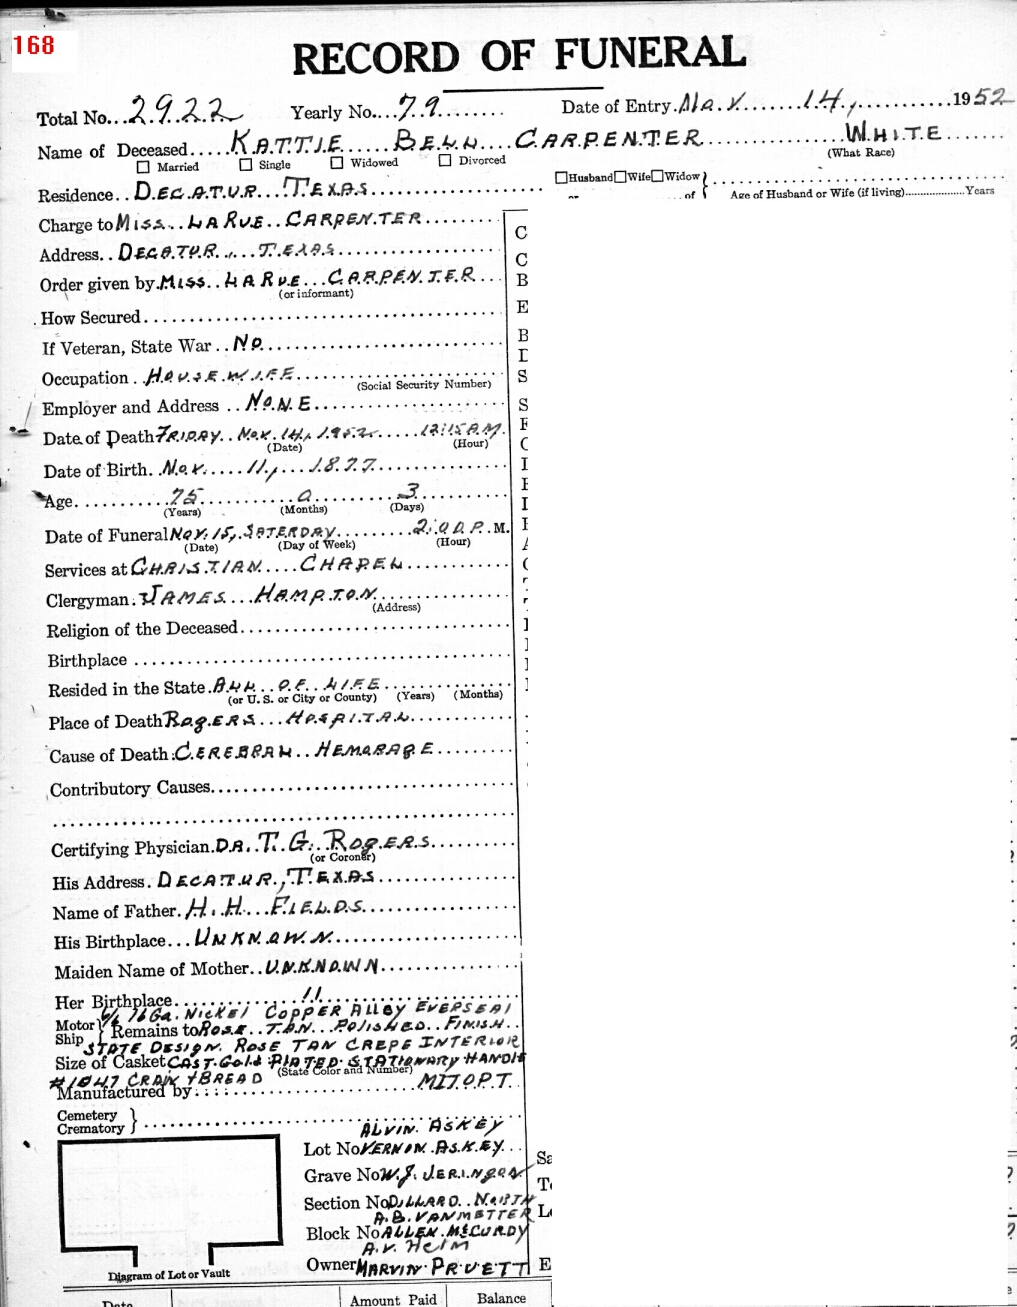 168
RECORD OF FUNERAL
Total No. 2922 Yearly No. 79 Date of Entry. Nov. 14, 1952
Name of Deceased KATTIE BELL CARPENTER WHITE
Married Single Widowed Divorced (What Race)
Residence DECATUR TEXAS Husband Wife Widow
of Age of Husband or Wife (if living) Years
Charge to MISS LARUE CARPENTER
Address DECATUR, TEXAS
Order given by MISS LARUE CARPENTER
(or informant)
How Secured
If Veteran, State War No
Occupation HOUSEWIFE
(Social Security Number)
Employer and Address NONE
Date of Death FRIDAY Nov. 14, 1952 12:15 A.M.
(Date) (Hour)
Date of Birth Nov. 11, 1877
Age 75 0 3
(Years) (Months) (Days)
Date of Funeral Nov. 15, SATERDAY 2:00 P. M.
(Date) (Day of Week) (Hour)
Services at CHRISTIAN CHAPEL
Clergyman JAMES HAMPTON
(Address)
Religion of the Deceased
Birthplace
Resided in the State ALL OF LIFE
(or U. S. or City or County) (Years) (Months)
Place of Death ROgERS HOSPITAL
Cause of Death CEREBRAL HEMORAGE
Contributory Causes
Certifying Physician DR. T. G. ROgERS
(or Coroner)
His Address DECATUR, TEXAS
Name of Father H. H. FIELDS
His Birthplace UNKNOWN
Maiden Name of Mother UNKNOWN
Her Birthplace 11
16 Ga. Nickel COPPER Alloy EVERSEAl
Motor Ship Remains to ROSE TAN POLISHED FINISH
STATE DESIGN. ROSE TAN CREPE INTERIOR
Size of Casket CAST Gold PlATED STATIONARY HANDlE
(State Color and Number)
#1047
Manufactured by
Cemetery
Crematory
ALVIN ASKEY
Lot No VERNON ASKEY
Grave No W. J.
Section No DILLARD NORTH
A. B. VANMETTER
Block No ALLEN McCURDY
A. V. HElM
Owner MARVIN PRUETT
Diagram of Lot or Vault
Date Amount Paid Balance